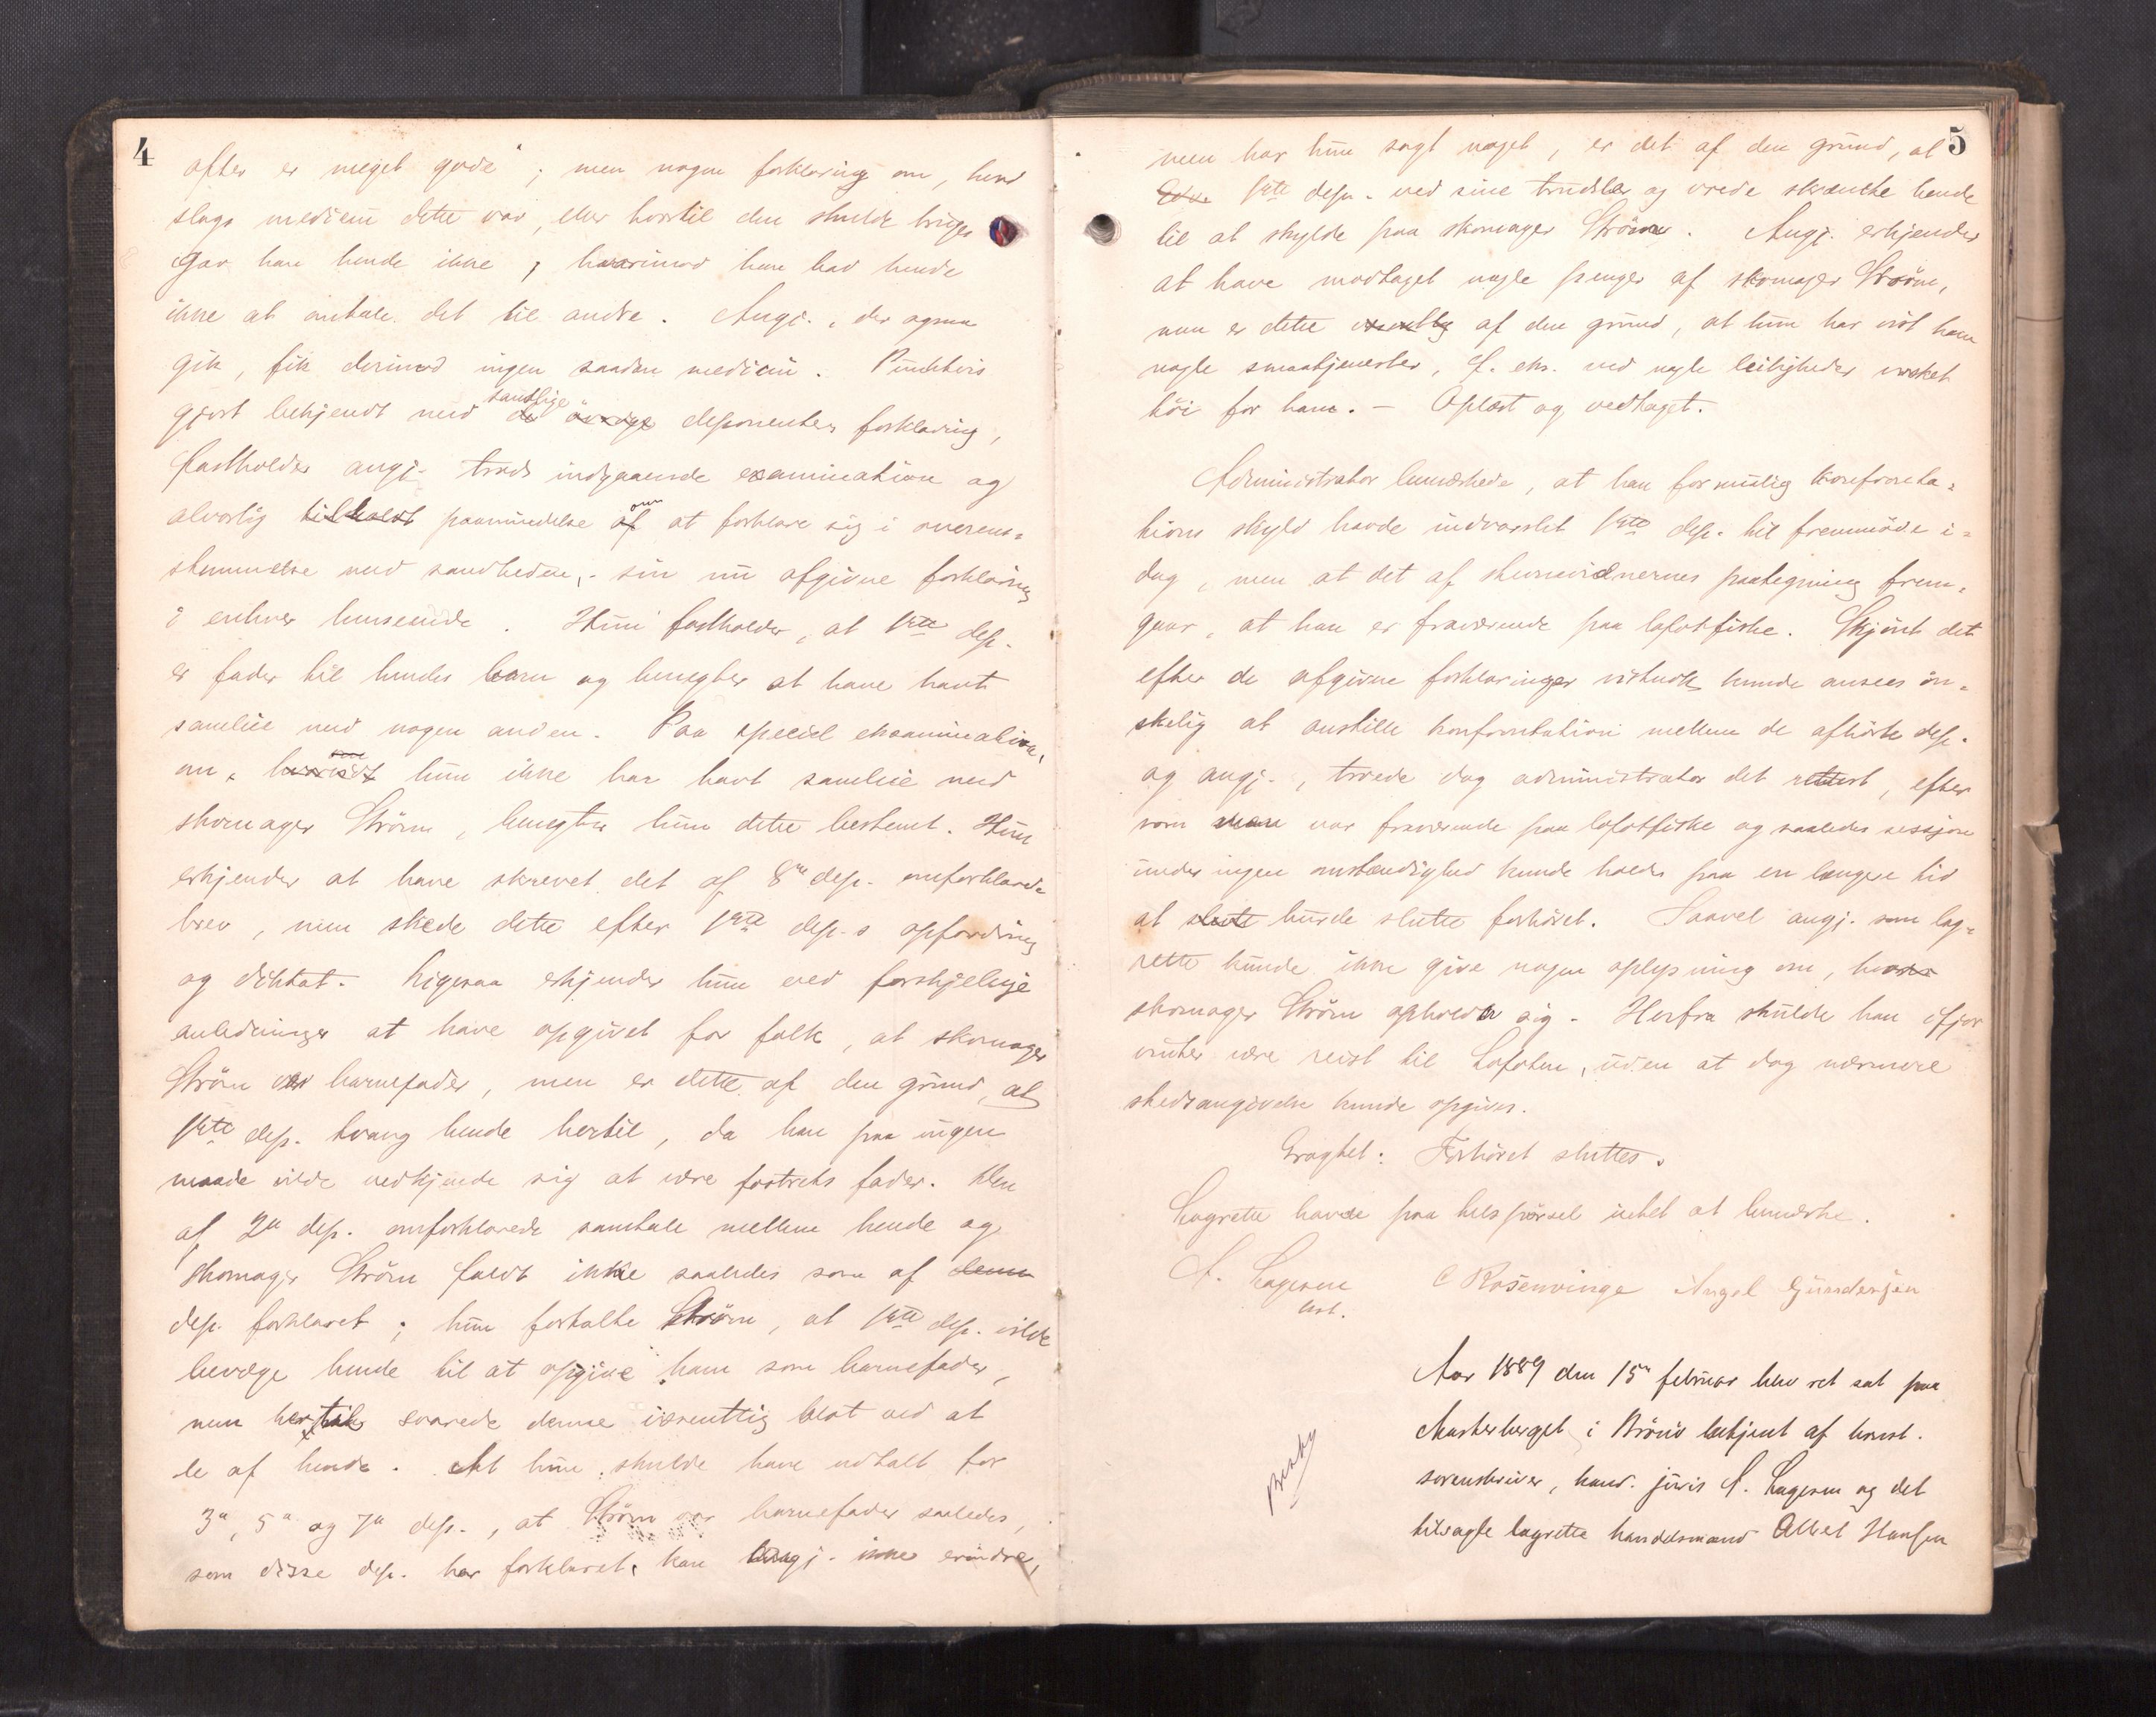 4
efter er meget gode"; men nogen forklaring om, hvad
slags medicin dette var, eller hvortil den skulde bruges
gav han hende ikke, hvorimod han bad hende
ikke at omtale det til andre. Angj., der ogsaa
gik, fik derimod ingen saadan medicin. Punktvis
gjort bekjendt med de övrige samtlige deponenters forklaring,
fastholder angj. trods indgaaende examination og
alvorlig tilholdt paamindelse af om at forklare sig i overens-
stemmelse med sandheden, sin nu afgivne forklaring
i enhver henseende. Hun fastholder, at 1ste dep.
er fader til hendes barn og benegter at have havt
samleie med nogen anden. Paa speciel examination,
om hun ikke har havt samleie med
skomager Ström, benegter hun dette bestemt. Hun
erkjender at have skrevet det af 8de dep. omforklarede
brev, men skede dette efter 1ste dep.s opfordring
og diktat. Ligesaa erkjender hun ved forskjelige
anledninger at have opgivet for folk, at skomager
Ström var barnefader, men er dette af den grund, at
1ste dep. tvang hende hertil, da han paa ingen
maade vilde vedkjende sig at være fostrets fader. Den
af 2n dep. omforklarede samtale mellem hende og
skomager Ström faldt ikke saaledes som af denne
dep. forklaret; hun fortalte Ström, at 1ste dep. vilde
bevæge hende til at opgive ham som barnefader,
men hertil svarede denne isventlig blot ved at
le af hende. At hun skulde have udtalt for
3n, 5n og 7n dep., at Ström var barnefader saaledes,
som disse dep. har forklaret, kan angj. ikke erindre,
5
men har hun sagt noget, er det af den grund, at
1ste dep. ved sine trudsler og vrede skræmte hende
til at skylde paa skomager Ström. Angj. erkjender
at have modtaget nogle penger af skomager Ström,
men er dette af den grund, at hun har vist ham
nogle smaatjenester, f. eks. ved nogle leiligheder vasket
töi for ham. – Oplæst og vedtaget.
Administrator bemærkede, at han for mulig konfronta-
tions skyld havde indvarslet 1ste dep. til fremmöde i-
dag, men at det af stevnevidnernes paategning frem-
gaar, at han er fraværende paa lofotfiske. Skjönt det
efter de afgivne forklaringer vistnok kunde ansees ön-
skelig at anstille konfrontation mellem de afhörte dep.
og angj., troede dog administrator det rettest, efter
som man var fraværende paa lofotfiske og saaledes session
under ingen omstændighed kunde holdes paa en længere tid
at slutte burde slutte forhöret. Saavel angj. som lag-
rette kunde ikke give nogen oplysning om, hvor
skomager Ström opholder sig. Herfra skulde han ifjor
vinter være reist til Lofoten, uden at dog nærmere
stedsangivelse kunde opgives.
Eragtet: Forhöret sluttes.
Lagrette havde paa tilspörsel intet at bemærke.
A. Lagesen C Rosenvinge Angel Gundersen
kst.
Aar 1889 den 15n februar blev ret sat paa
Mosterberget i Brönö betjent af konst.
sorenskriver, kand. juris A. Lagesen og det
tilsagte lagrette handelsmand Albert Hansen